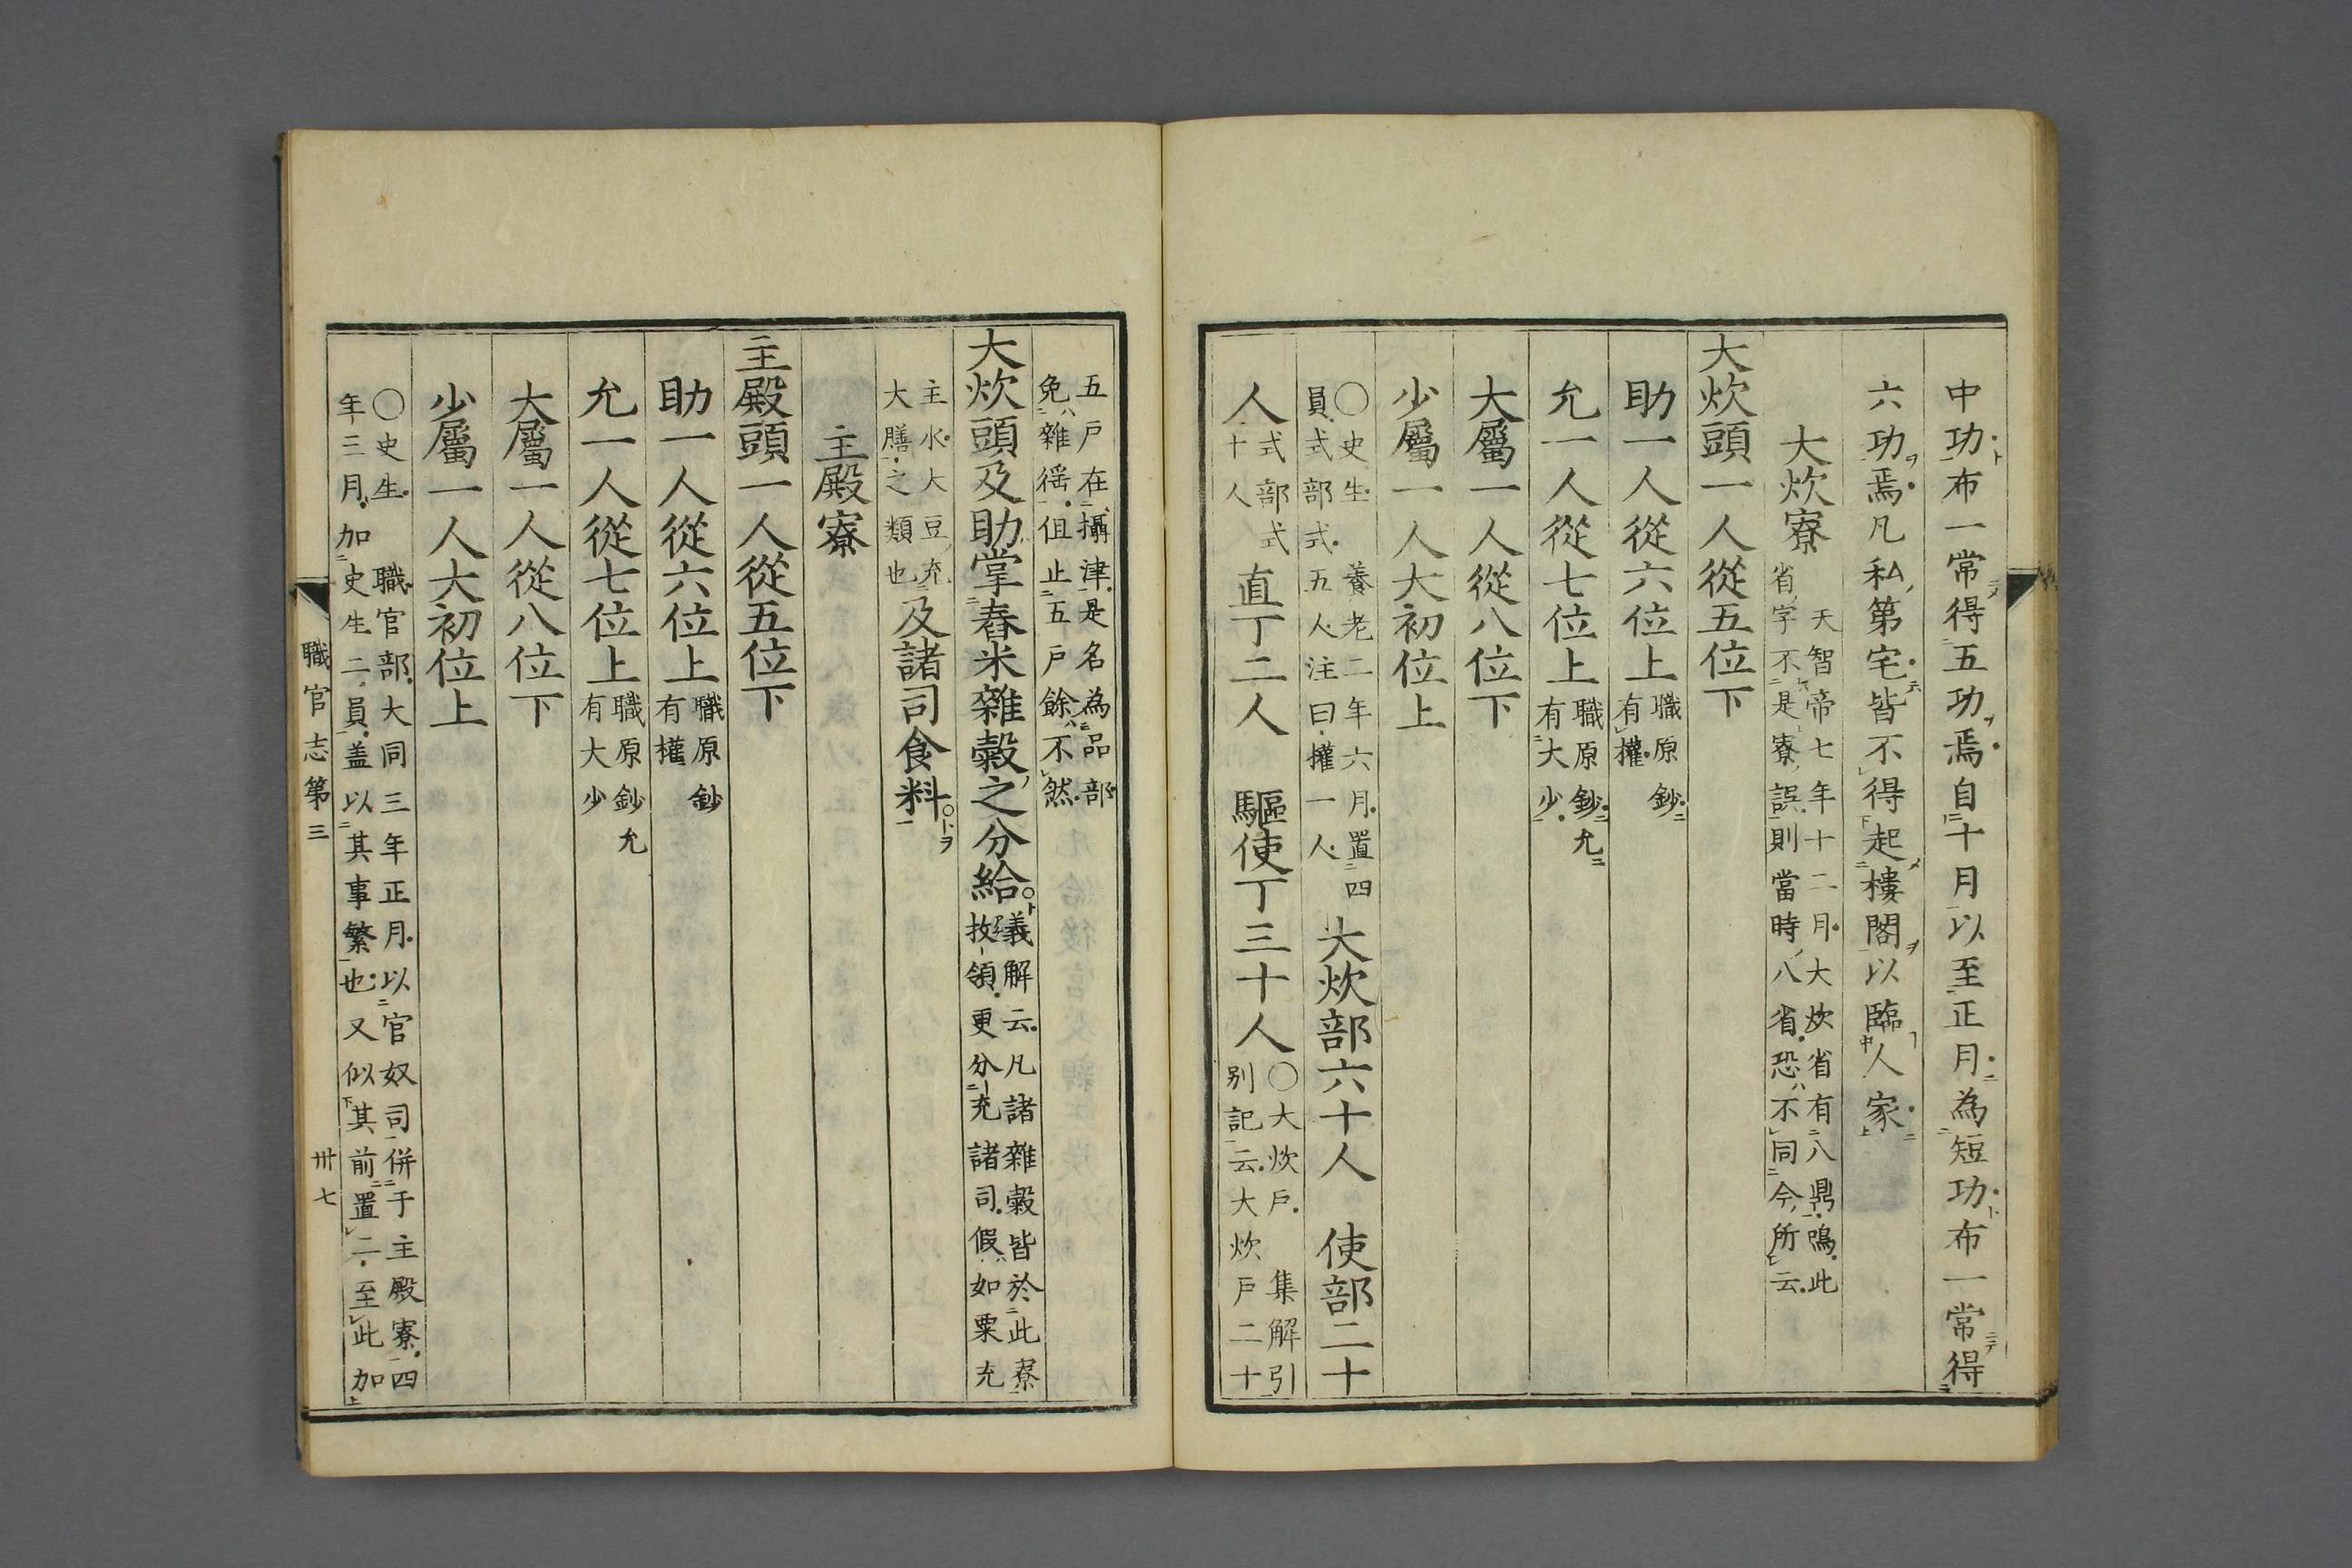 中功布一常得五功焉自十月以至正月為短功布一常得
六功焉凡私第宅皆不得起樓閣以臨人家
大炊寮
天智帝七年十二月大炊省有八鼎鳴此
省字不是寮誤則當時八省恐不同今所云
大炊頭一人從五位下
助一人從六位上
職原鈔
有權
允一人從七位上
職原鈔允
有大少
大屬一人從八位下
少屬一人大初位上
〇史生 養老二年六月置四
員式部式五人注曰權一人
大炊部六十人 使部二十
人
式部式
十人
直丁二人 驅使丁三十人
〇大炊戶 集解引
别記云大炊戶二十
五戶在攝津是名為品部
免雜徭但止五戶餘不然
大炊頭及助掌舂米雜穀之分給
義解云凡諸雜穀皆於此寮
抜領更分充諸司假如粟充
主水大豆充
大膳之類也
及諸司食料
主殿寮
主殿頭一人從五位下
助一人從六位上
職原鈔
有權
允一人從七位上
職原鈔允
有大少
大屬一人從八位下
少屬一人大初位上
〇史生 職官部大同三年正月以官奴司併于主殿寮四
年三月加史生二員盖以其事繁也又似其前置二至此加
職官志第三 卅七